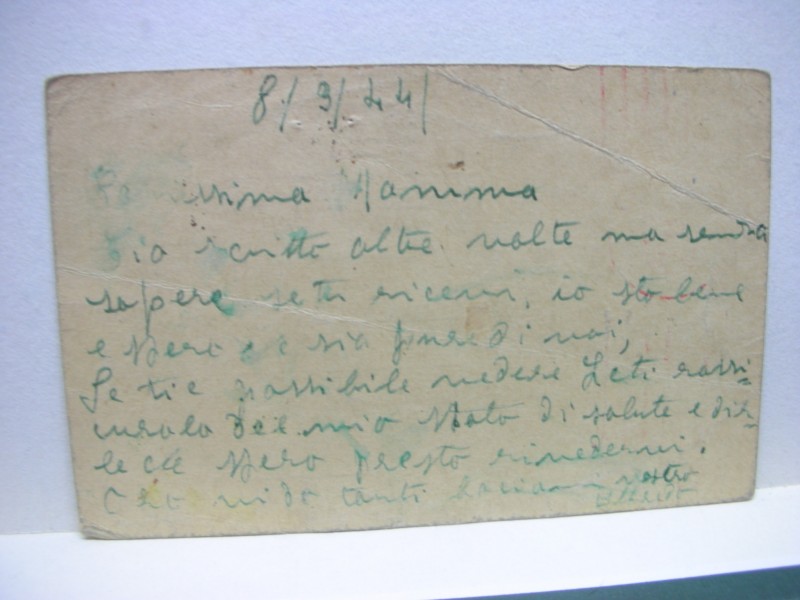 8/9/44
issima Mamma
scritto altre volte ma senza
sapere se tu ricevi, io sto bene
e spero che sia pure di voi,
Se tic possibile vedere Leti rassi=
curala del mio stato di salute e dir=
le che spero presto rivedervi.
Ora vi do tanti bacioni vostro